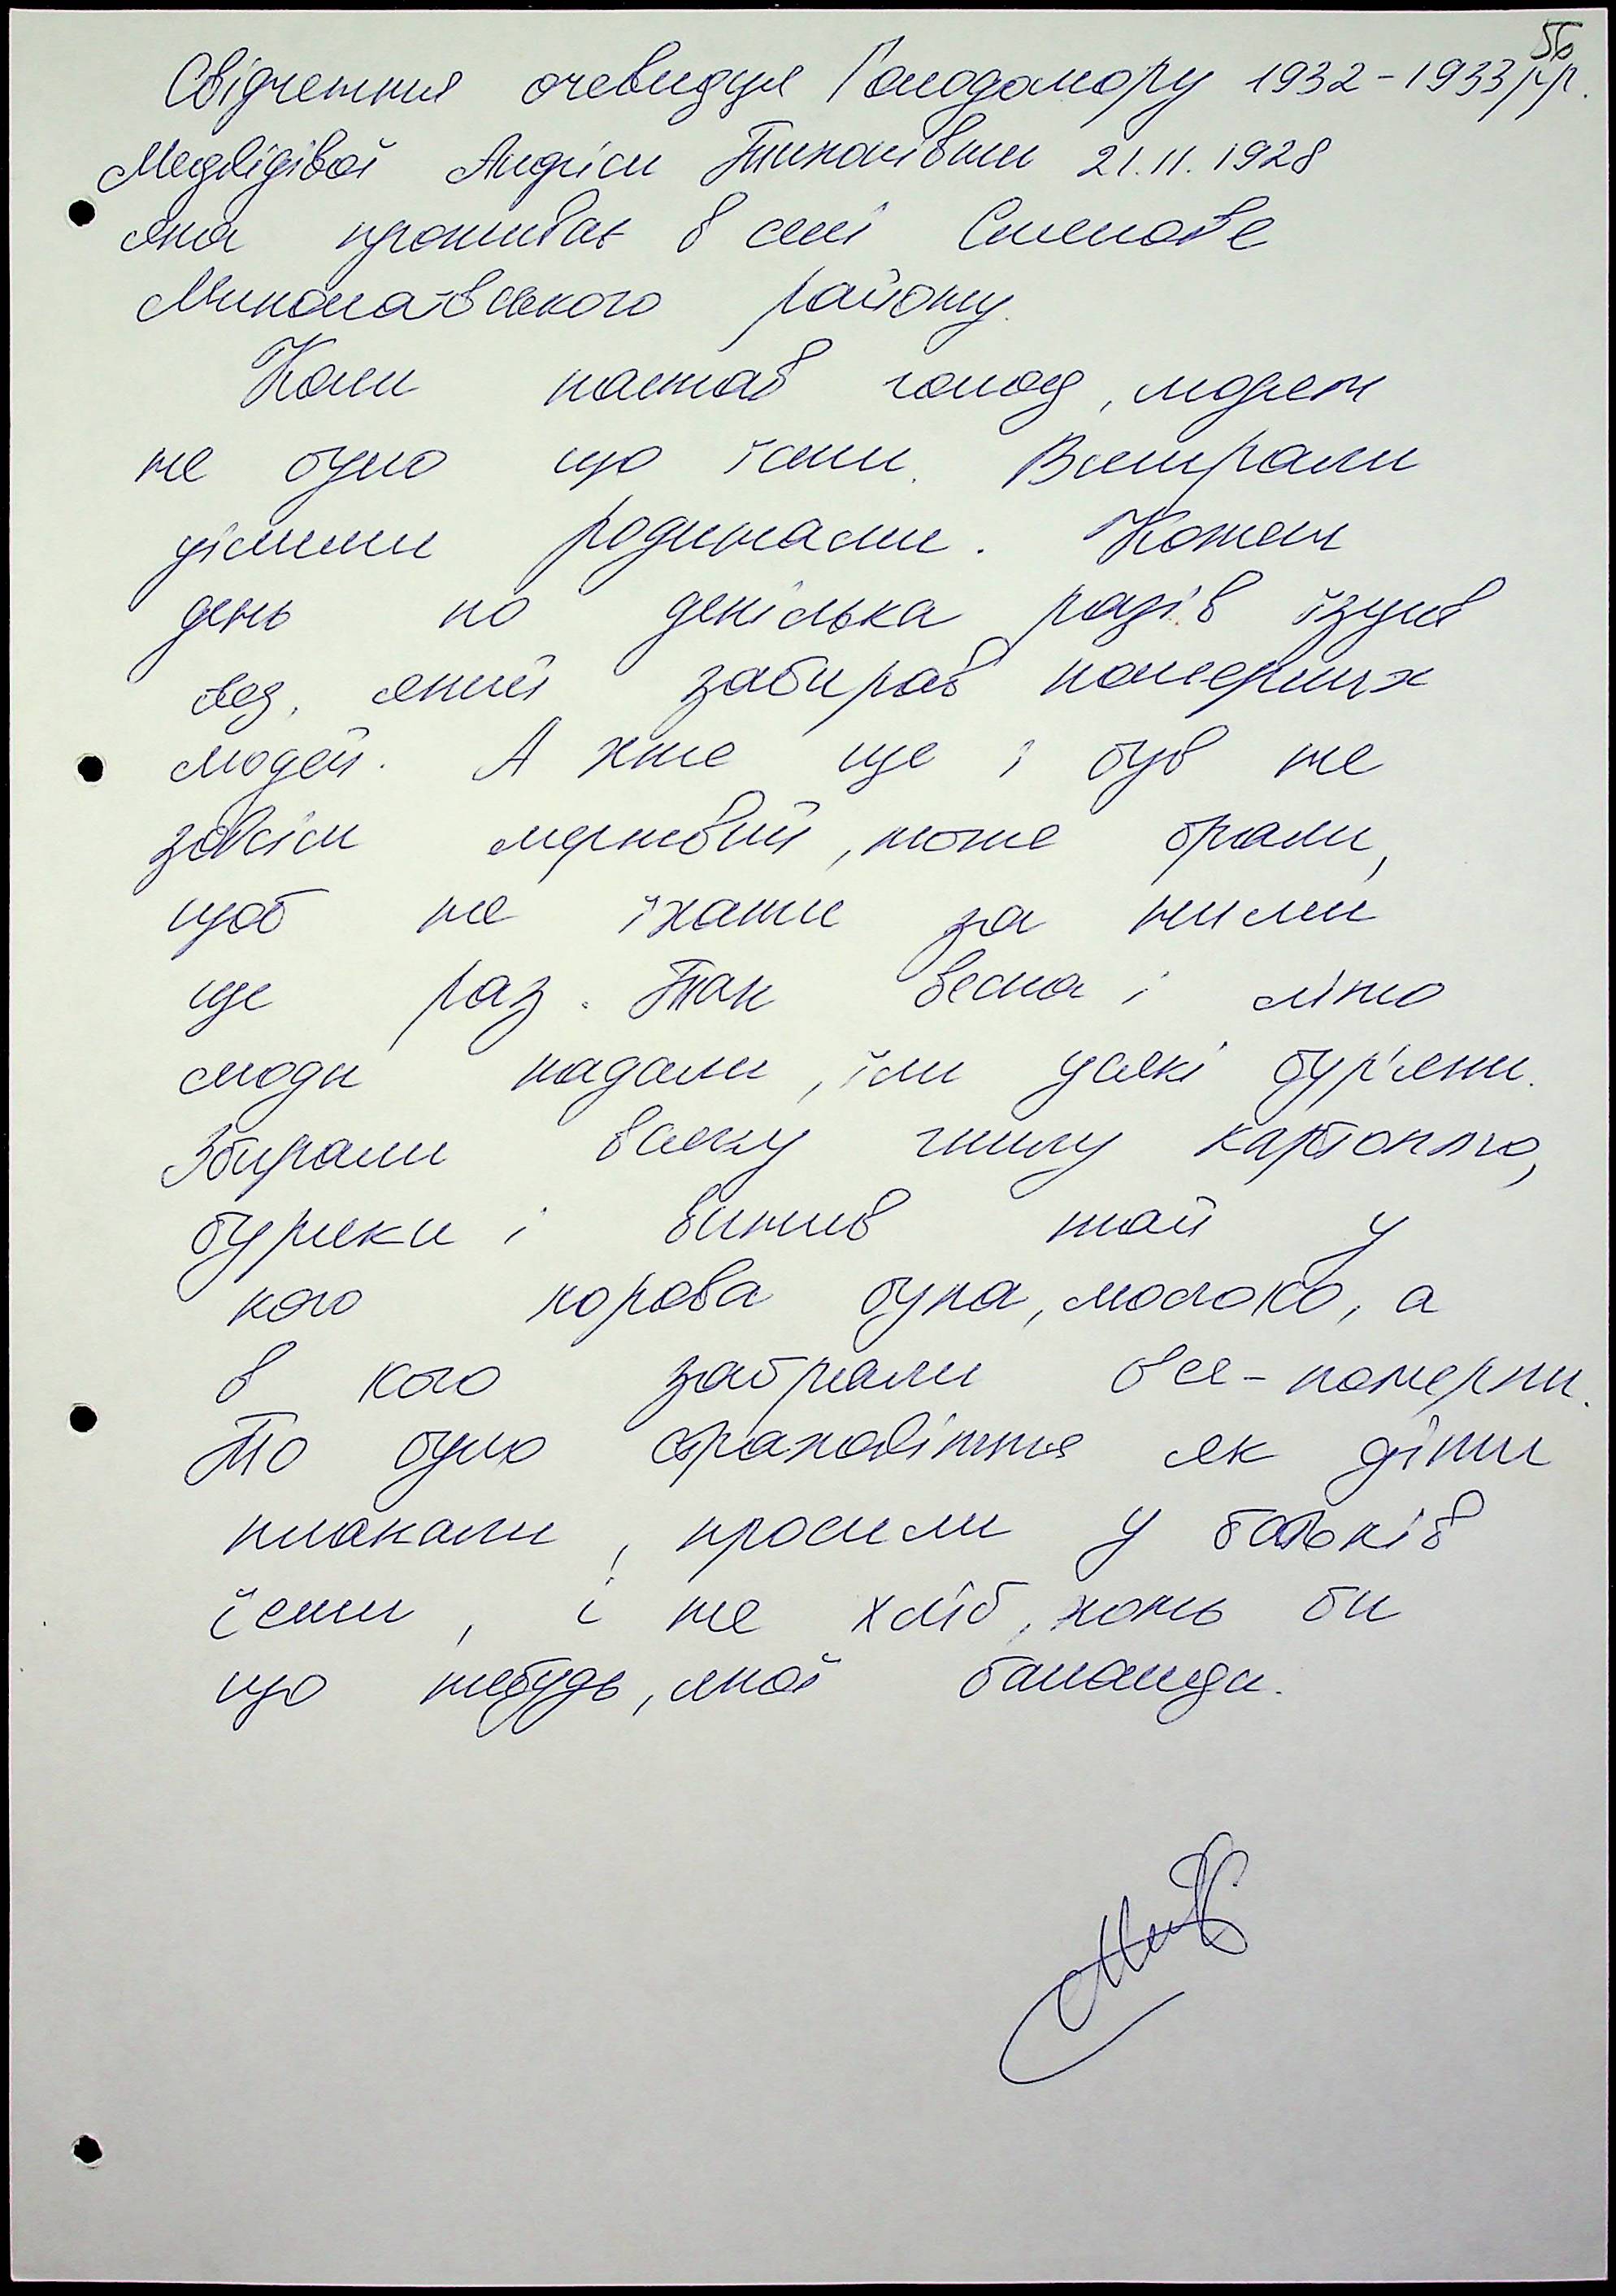 56
Свідчення очевидця Голодомору 1932-1933 рр.
Медвідівої Лидіси Тихонівни 21.11.1928
яка проживає в селі Сименове
Миколаївського району.
Коли настав голод, людям
не було що їсти. Вмирали
цілими родинами. Кожен
день по декілька разів їздив
воз, який забирав померших
людей. А хто ще і був не
зовсім мертвий, тоже брали,
щоб не їхати за ними
ще раз. Так весна і літо
люди падали, їли усякі бур'яни.
Збирали всяку гнилу картоплю,
буряки і вижив той у
кого корова була, молоко, а
в кого забрали все - померли.
То було страховіття як діти
плакали, просили у батьків
їсти, і не хліб, хоть би
що небудь, якої баланди.